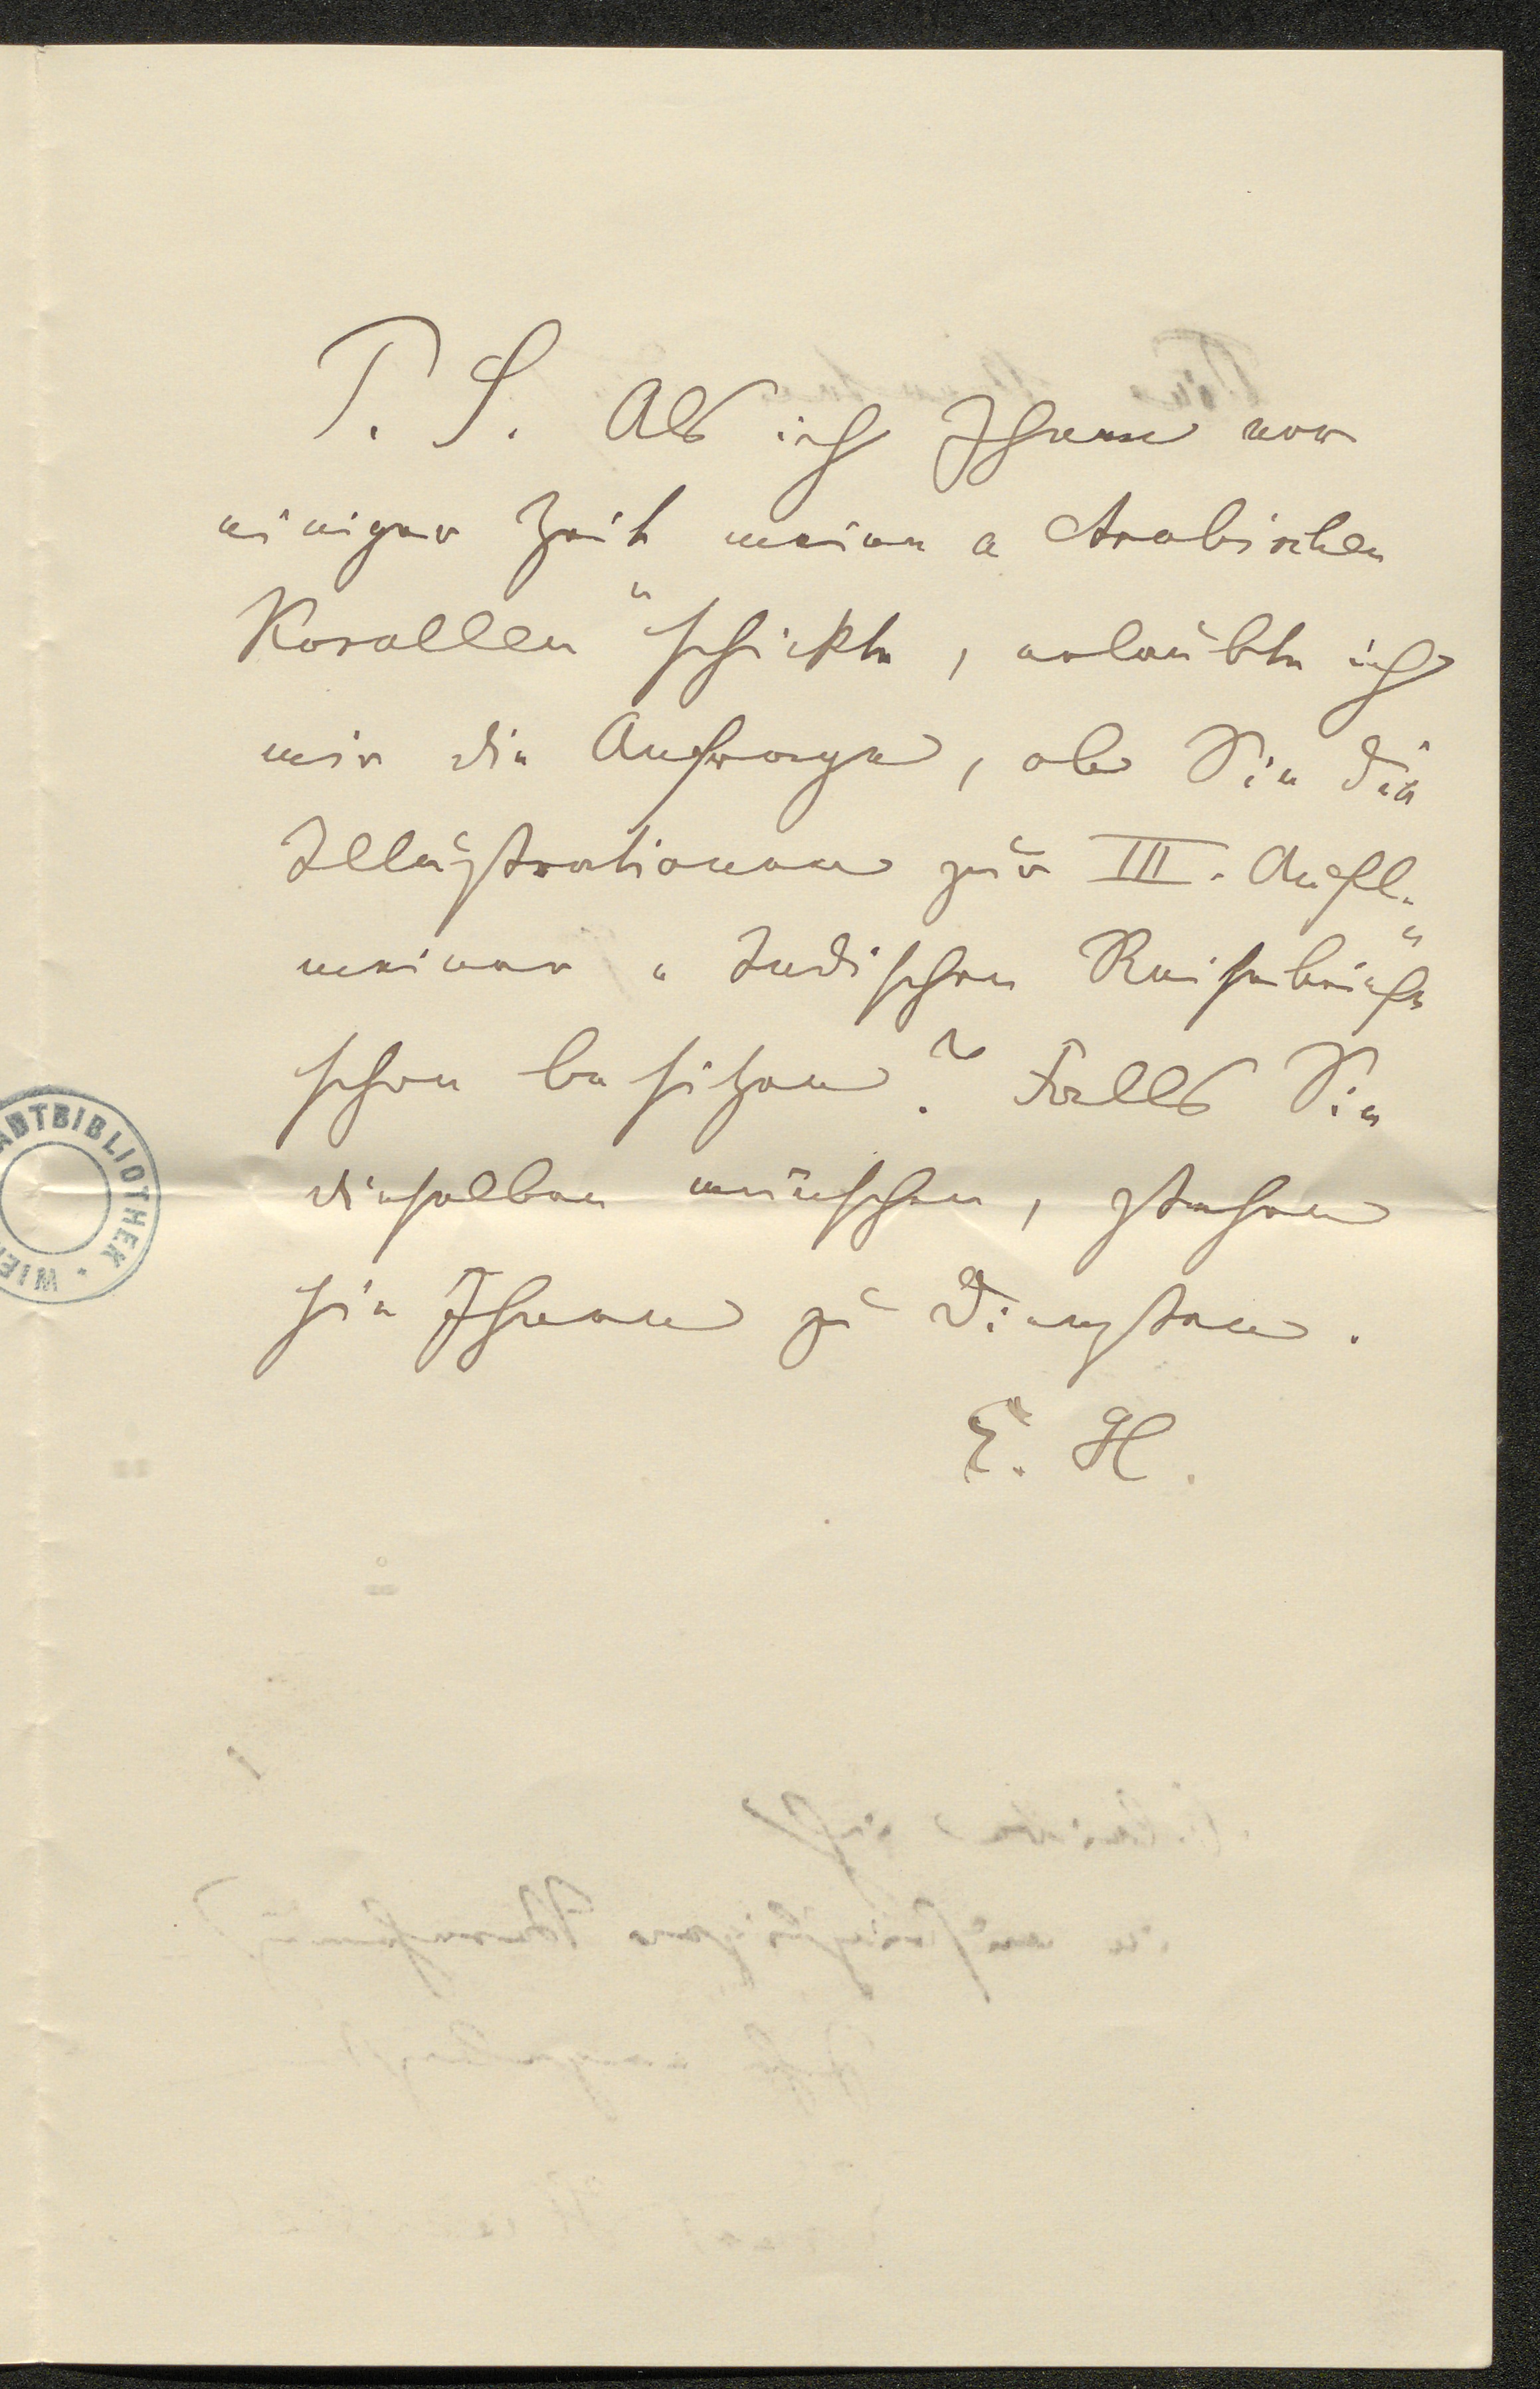 P. S. Als ich Ihnen vor
einiger Zeit meine „Arabischen
Korallen“ schickte, erlaubte ich
mir die Anfrage, ob Sie die
Illustrationen zur III. Aufl.
meiner „Indischen Reisebriefe“
schon besitzen? Falls Sie
dieselben wünschen, stehen
sie Ihnen zu Diensten.
E. H.
ADTBIBLIOTHEK · WIE